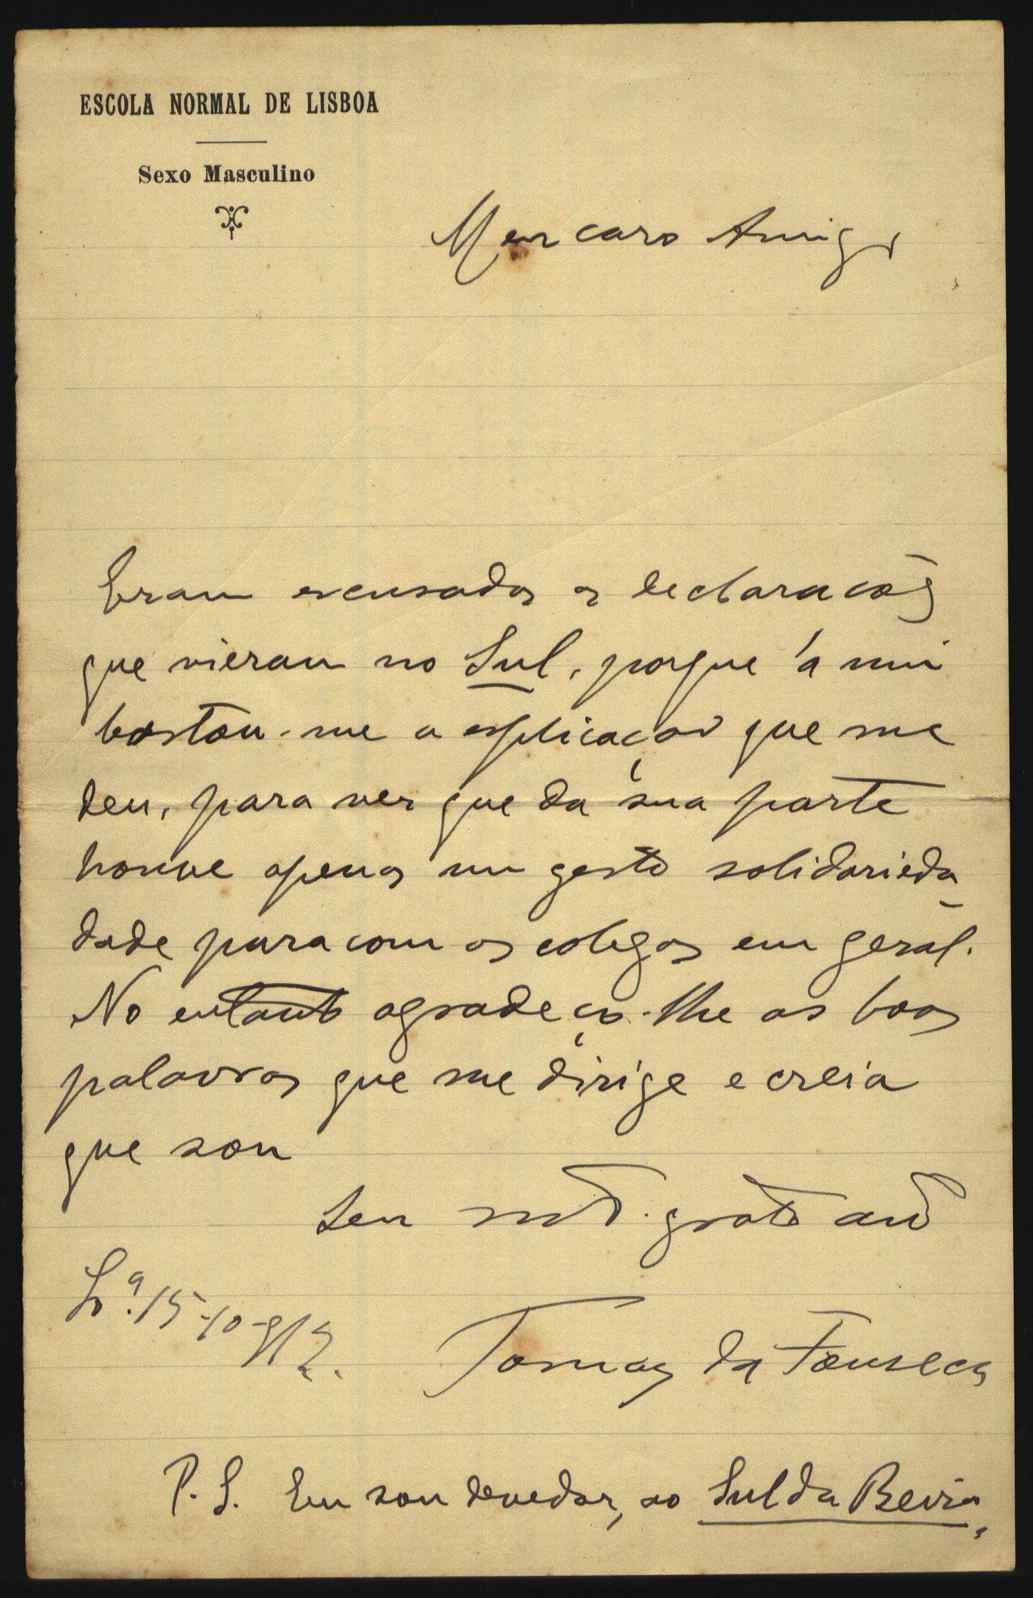 ESCOLA NORMAL DE LISBOA
Sexo Masculino
Meu caro Amigo
Eram escusadas as declarações
que vieram no Sul, porque á mim
bastou-me a esplicaçao que me
deu, para ver que da sua parte
houve apenas um gesto solidarieda
dade para com os colegas em geral.
No entanto agradeço-lhe as boas
palavras que me dirige e creia
que sou
Seu mtº. grato amº
Lª. 15-10-912.
Tomaz da Fonseca
P. S. Eu sou devedor, ao Sul da Beira,